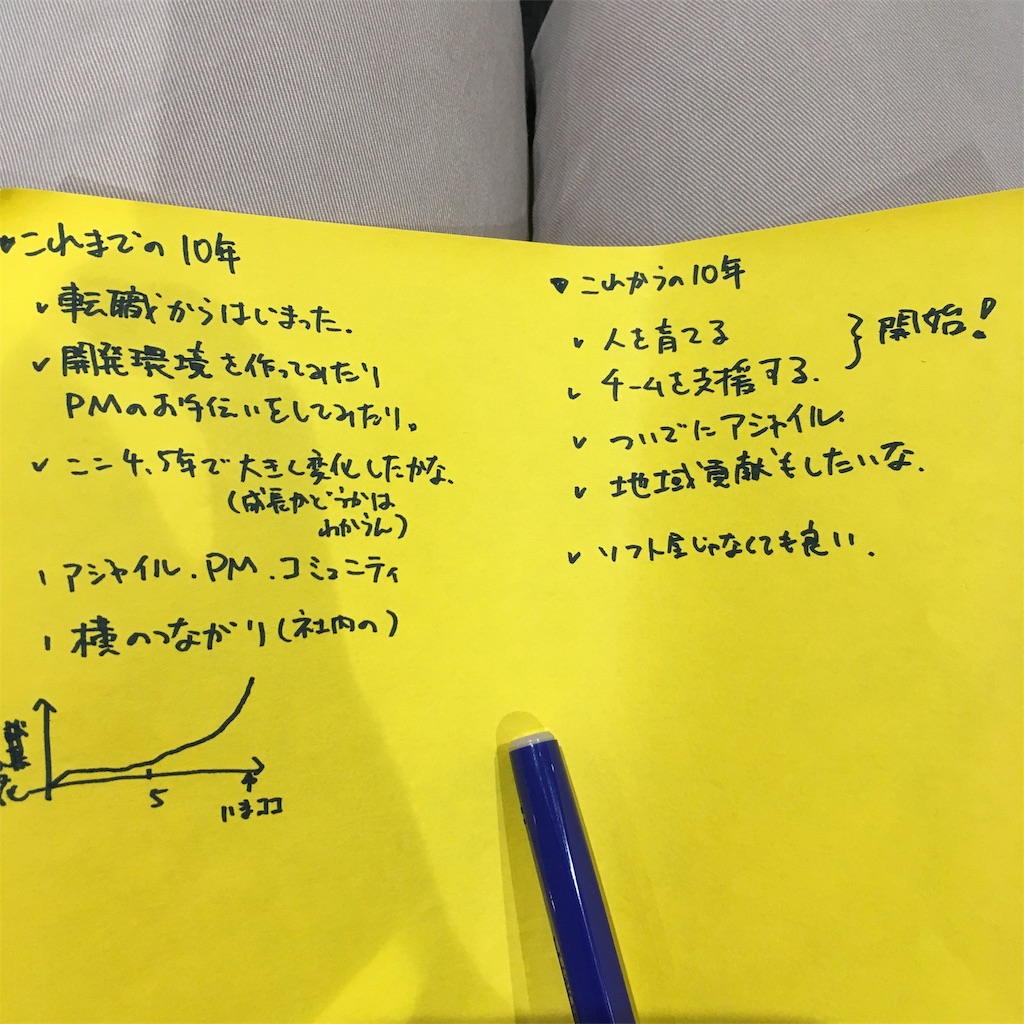 これまでの10年
転職からはじまった.
開発環境を作ってみたり
PMのお手伝いをしてみたり。
ここ4、5年で大きく変化したかな、
(成長かどうかは
わからん)
アジャイル.PM.コミュニティ
横のつながり(社内の)
5
いまココ
これからの10年
人を育てる
チームを支援する.
開始!
ついでにアジャイル.
地域貢献もしたいな.
ソフト屋じゃなくても良い.